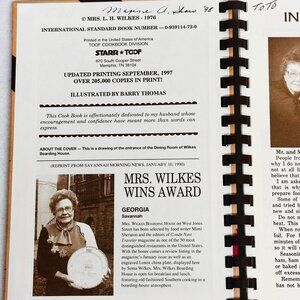 Maxine A. Starr '98
© MRS. L. H. WILKES - 1976
INTERNATIONAL STANDARD BOOK NUMBER — 0-939114-72-0
Printed in the United States of America
TOOF COOKBOOK DIVISION
STARR ★ TOOF
670 South Cooper Street
Memphis, TN 38104
UPDATED PRINTING SEPTEMBER, 1997
OVER 205,000 COPIES IN PRINT!
ILLUSTRATED BY BARRY THOMAS
This Cook Book is affectionately dedicated to my husband whose
encouragement and confidence have meant more than words can
express.
ABOUT THE COVER — This is a drawing of the entrance of the Dining Room of Wilkes
Boarding House.
(REPRINT FROM SAVANNAH MORNING NEWS, JANUARY 10, 1990)
MRS. WILKES
WINS AWARD
GEORGIA
Savannah
MRS. WILKES BOARDING HOUSE on West Jones
Street has been selected by food writer Mimi
Sheraton and the editors of Conde Nast
Traveler magazine as one of the 50 most
distinguished restaurants in the United States.
With the honor comes a review listing in the
magazine's January issue as well as an
engraved Lenox china plate, displayed here
by Sema Wilkes. Mrs. Wilkes Boarding
House is open for breakfast and lunch,
featuring old-fashioned Southern cooking in
a boarding-house atmosphere.
TOTO
IN
Mr. and M
People from
why I do no
not at all li
believe that
I am aske
that is wh
tried to pa
Some of
and tried
new and
Do not o
heat. This
When yo
foil. For
minutes of
will be re
Seasonin
ham, ham
kept in
or